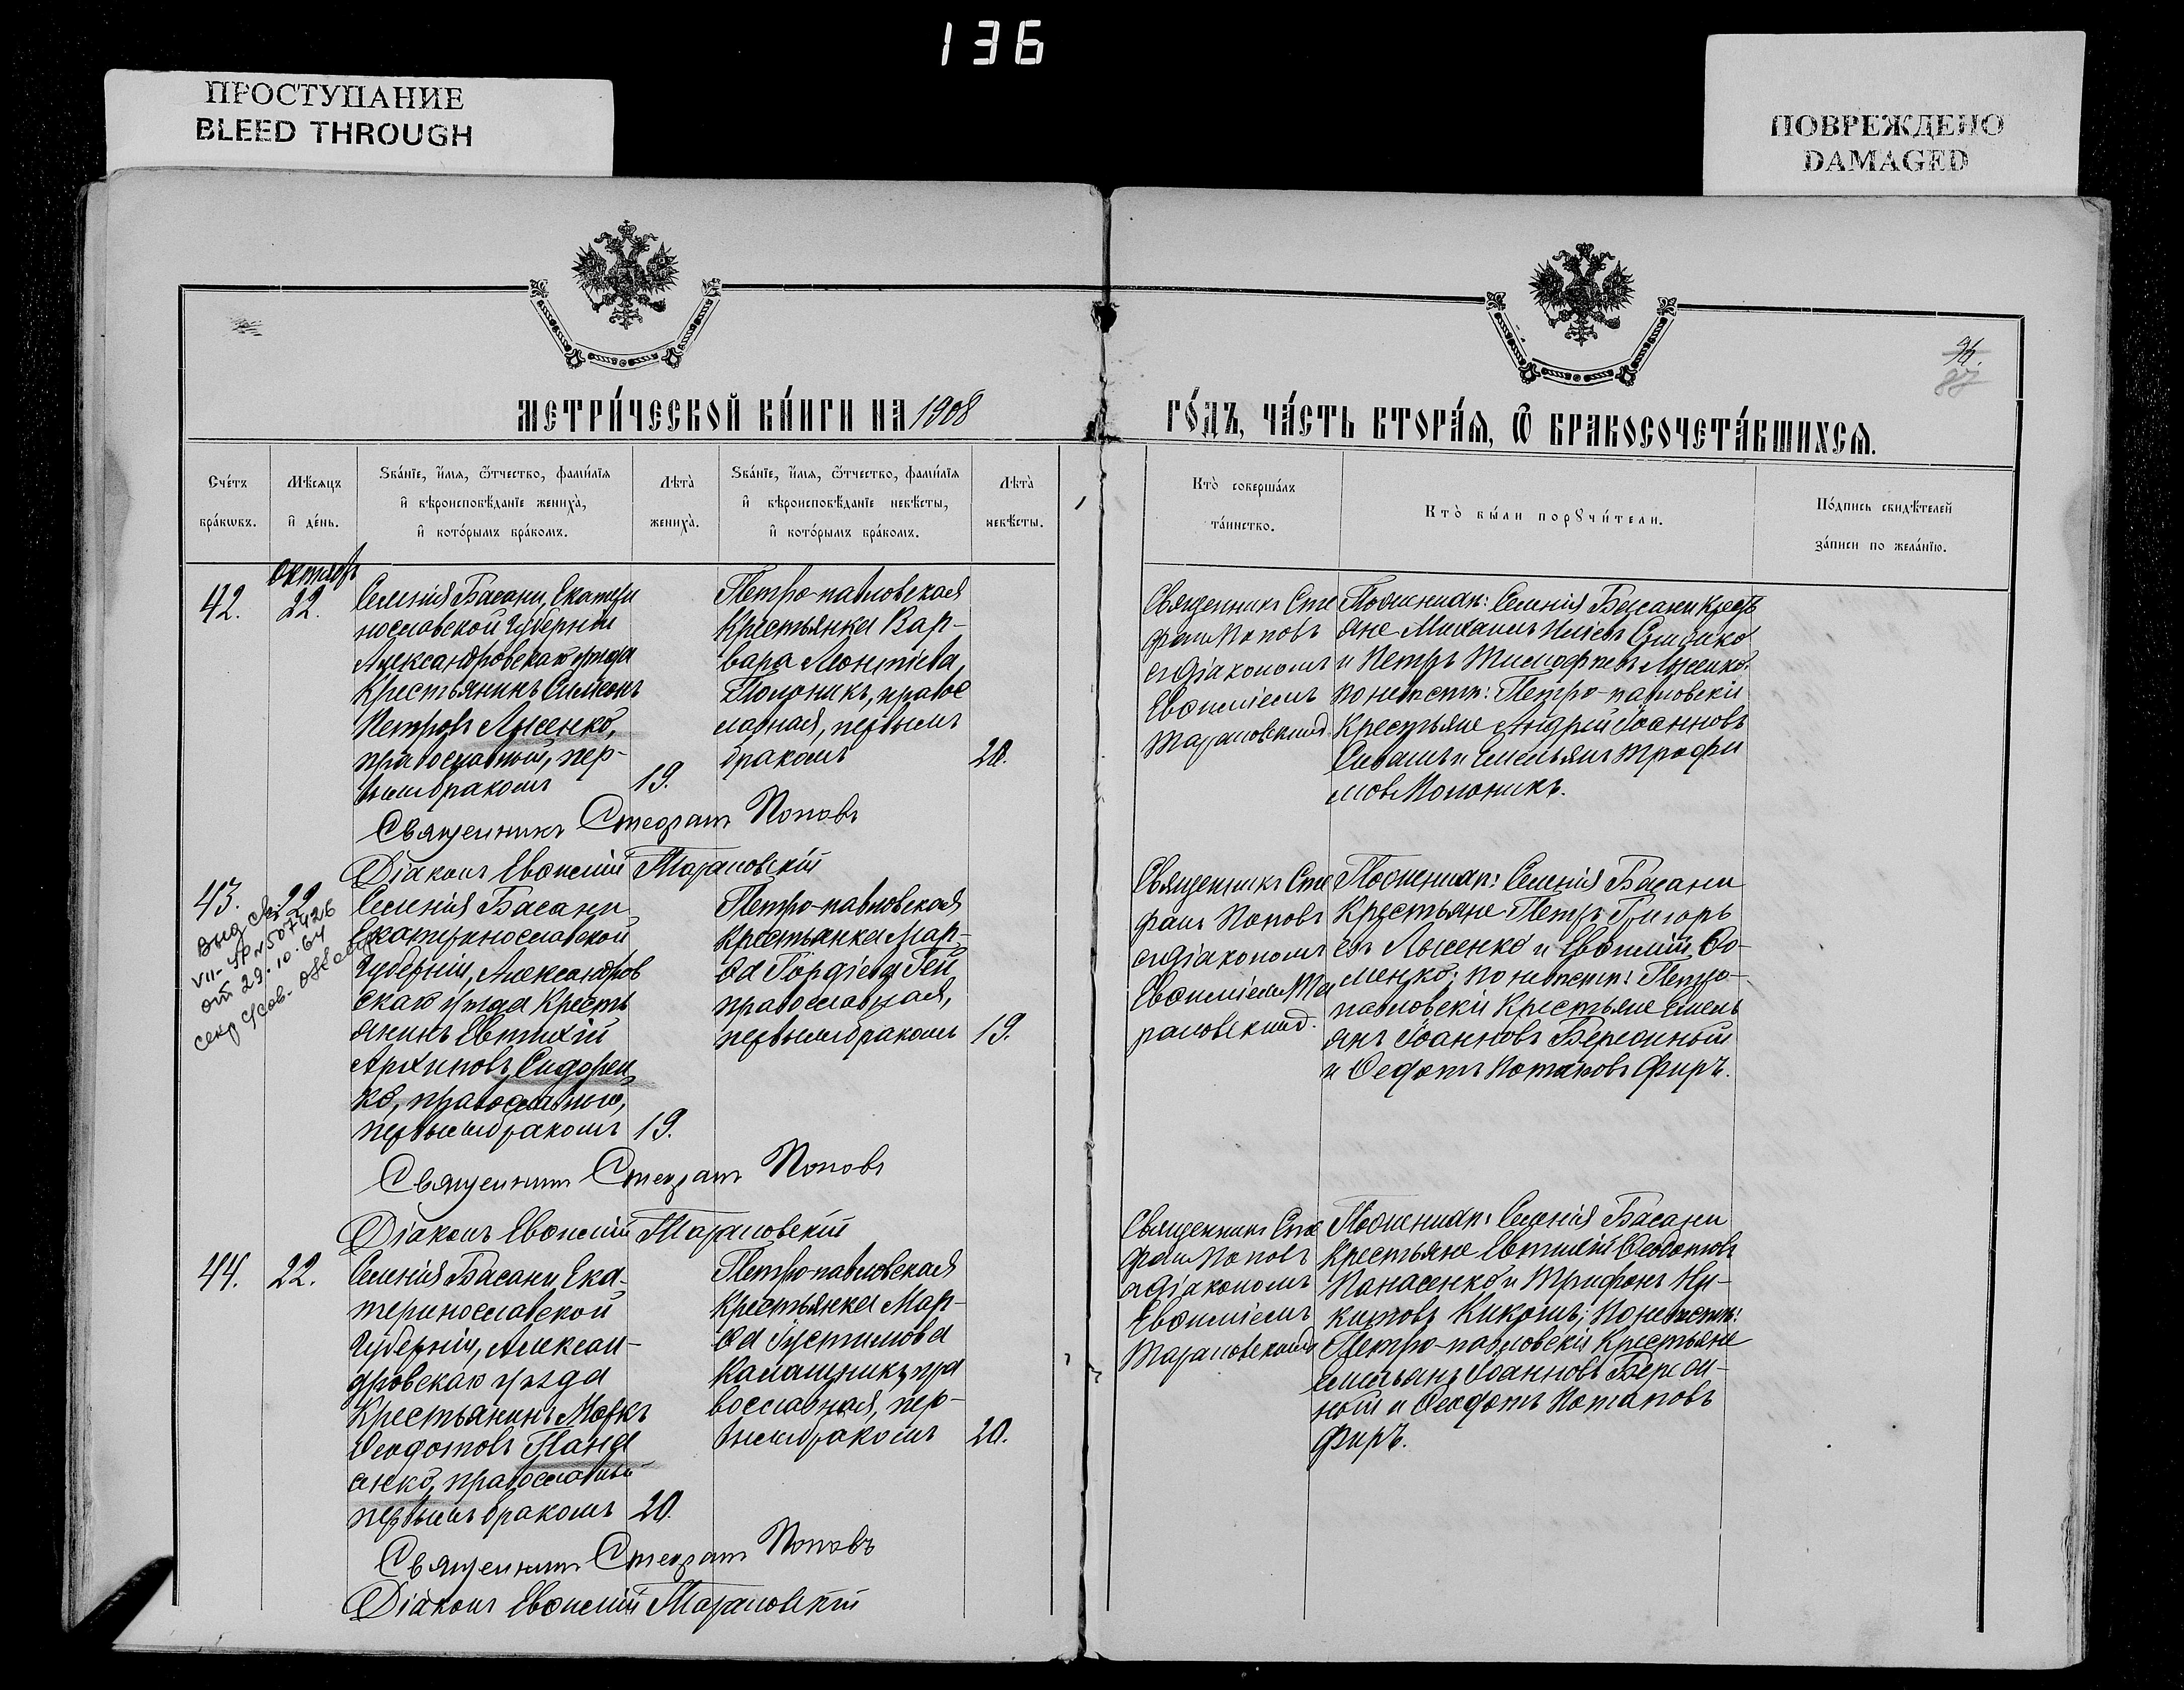 136
ПРОСТУПАНИЕ
BLEED THROUGH
ПОВРЕЖДЕНО
DAMAGED
87
МЕТРИ́ЧЕСКОЙ КНИ́ГИ НА 1908
ГО́ДЪ, ЧА́СТЬ ВТОРА́Я, Ѿ БРАКОСОЧЕТА́ВШИХСѦ.
Сче́тъ бра́кѡвъ.
Мѣ́сяцъ и҆ де́нь.
Ѕва́нїе, и҆́мѧ, ѻ҆́тчество, фами́лїѧ
и҆ вѣроисповѣ́данїе жениха̀,
и҆ кото́рымъ бра́комъ.
Лѣта̀ жениха̀.
Ѕва́нїе, и҆́мѧ, ѻ҆́тчество, фами́лїѧ
и҆ вѣроисповѣ́данїе невѣ́сты,
и҆ кото́рымъ бра́комъ.
Лѣта̀ невѣ́сты.
Кто̀ соверша́лъ та́инство.
Кто̀ бы́ли порꙋчи́тели.
По́дпись свидѣ́телей
за́писи по жела́нїю.
октябрь
42.
22.
Селенія Басани, Екатери
нославской Губерніи
Александровскаго уѣзда
Крестьянинъ Симеонъ
Петровъ Лысенко,
православный, пер-
вымъ бракомъ
19.
Петро-павловская
Крестьянка Вар-
вара Леонтіева,
Полоникъ, правос
лавная, первымъ
бракомъ
20.
Священникъ Сте
фанъ Поповъ
съ діакономъ
Евѳиміемъ
Тарановскимъ.
По женихѣ: Селенія Басани Кресть
яне Михаилъ Иліевъ
и Петръ Тимофеевъ Лысенко
по невѣстѣ: Петро-павловскіи
Крестьяне Андрей Іоанновъ
Сивашъ и Емельянъ Трофи
мовъ Полоникъ.
Священникъ Стефанъ Поповъ
Діаконъ Евѳимій Тарановскій
43.
22
Выд св.
VII-ЯР № 507426
от 29.10.64
Селенія Басани
Екатеринославской
Губерніи, Александров
скаго уѣзда Кресть
янинъ Евтихій
Архиповъ Сидорен
ко, православный,
первымъ бракомъ
19.
Петро-павловская
Крестьянка Мар-
ѳа Гордіева Гей
православная,
первымъ бракомъ
19.
Священникъ Сте
фанъ Поповъ
съ діакономъ
Евѳиміемъ Та
рановскимъ.
По женихѣ: Селенія Басани
Крестьяне Петръ Григорь
евъ Лысенко и Евѳимій Ѳо-
менко; по невѣстѣ: Петро-
павловскіи Крестьяне Емель
янъ Іоанновъ
и Ѳедотъ Потаповъ Фиръ.
Священникъ Стефанъ Поповъ
Діаконъ Евѳимій Тарановскій
44.
22.
Селенія Басани Ека-
теринославской
Губерніи, Алексан-
дровскаго уѣзда
Крестьянинъ Маркъ
Ѳеодотовъ Пана
сенко, православный
первымъ бракомъ
20.
Петро-павловская
Крестьянка Мар-
ѳа Густимова
Калашникъ, пра
вославная, пер-
вымъ бракомъ
20.
Священникъ Сте
фанъ Поповъ
съ діакономъ
Евѳиміемъ
Тарановскимъ
По женихѣ: Селенія Басани
Крестьяне Евтихій Ѳеодотовъ
Панасенко и Трифонъ Ни-
китовъ по невѣстѣ:
Петро-павловскіи Крестьяне
Емельянъ Іоанновъ
и Ѳеодотъ Потаповъ
Фиръ.
Священникъ Стефанъ Поповъ
Діаконъ Евѳимій Тарановскій